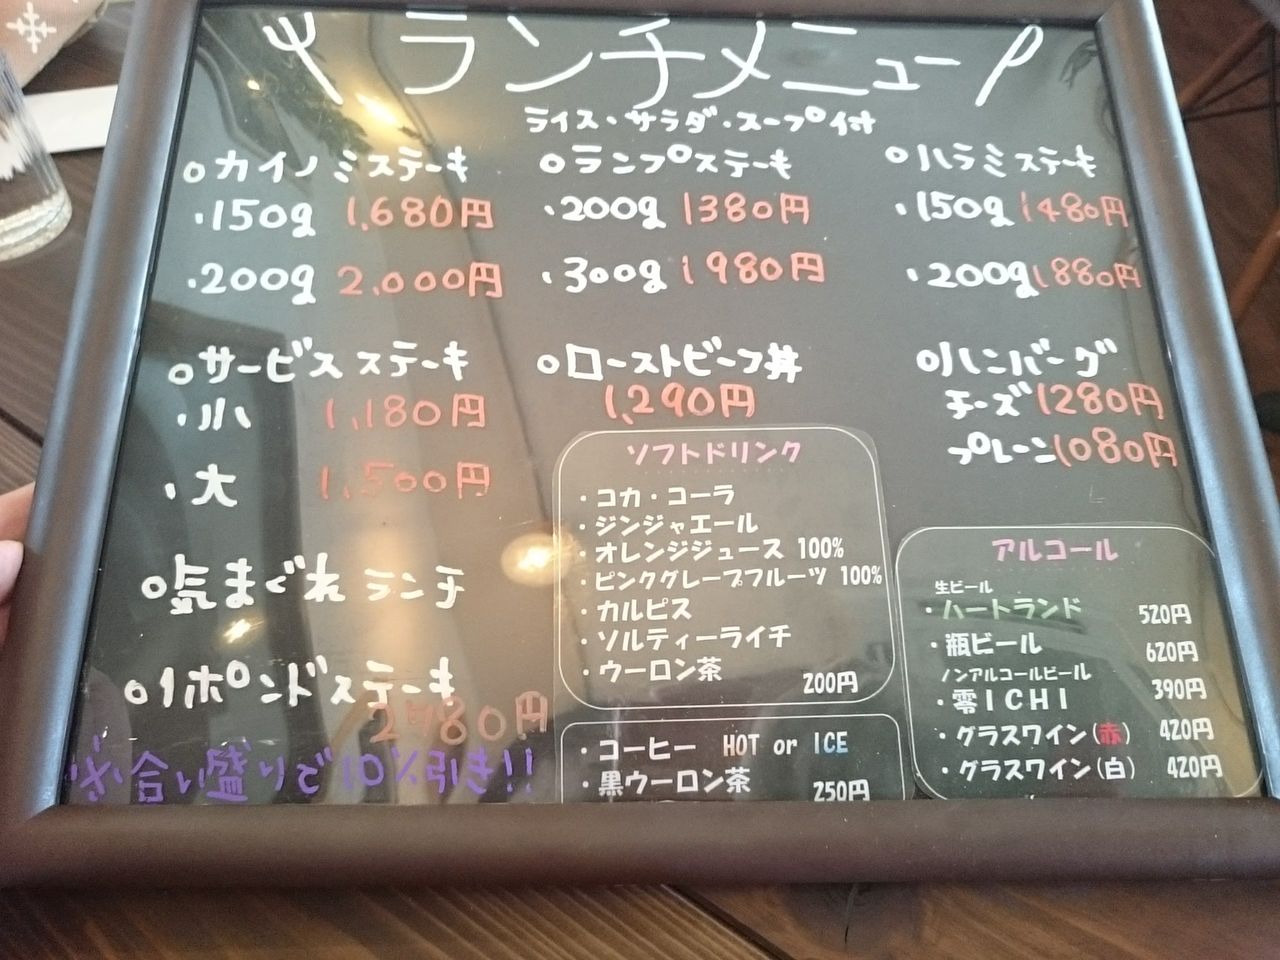 ランチメニュー
ライス・サラダ・スープ付
○カイノミステーキ
・150g 1,680円
・200g 2,000円
○ランプステーキ
・200g 1380円
・300g 1980円
○ハラミステーキ
・150g 1480円
・200g 1880円
○サービスステーキ
・小 1,180円
・大 1,500円
○ローストビーフ丼
1,290円
○ハンバーグ
チーズ 1280円
プレーン 1080円
○気まぐれランチ
○1ポンドステーキ
2780円
※合い盛りで10%引き!!
ソフトドリンク
・コカ・コーラ
・ジンジャエール
・オレンジジュース 100%
・ピンクグレープフルーツ 100%
・カルピス
・ソルティーライチ
・ウーロン茶
200円
・コーヒー HOT or ICE
・黒ウーロン茶
250円
アルコール
生ビール
・ハートランド 520円
・瓶ビール 620円
ノンアルコールビール
・零ICHI 390円
・グラスワイン(赤) 420円
・グラスワイン(白) 420円